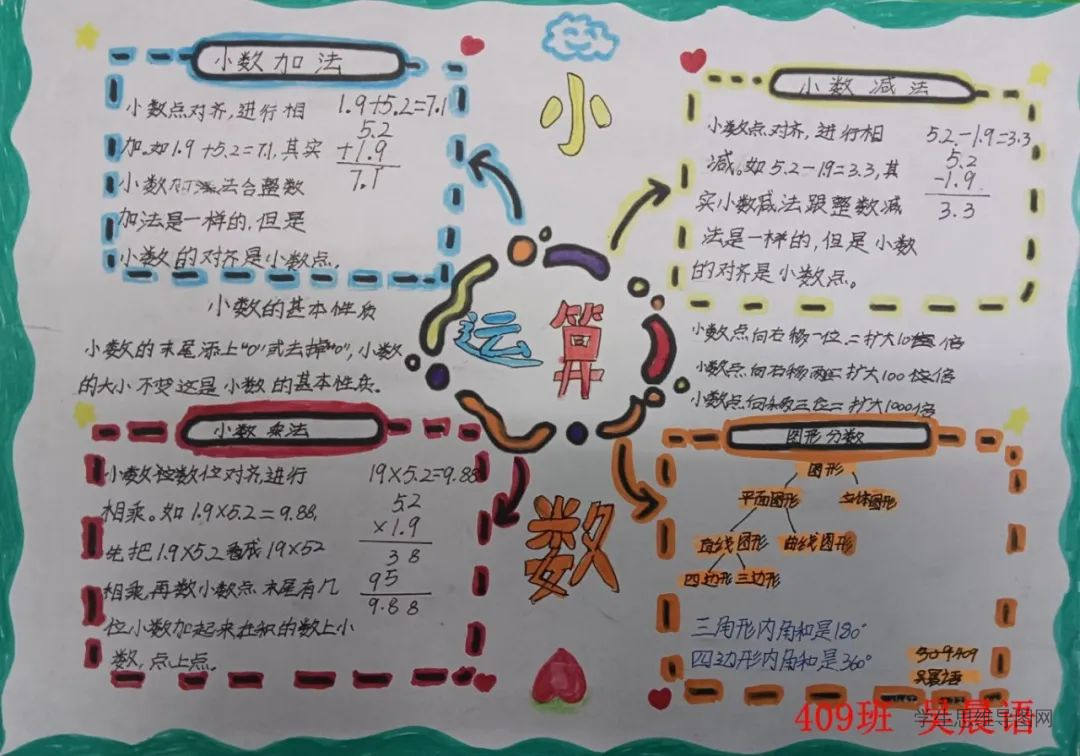 小数加法
小数点对齐,进行相
加。如1.9+5.2=7.1,其实
小数加法合整数
加法是一样的,但是
小数的对齐是小数点。
1.9+5.2=7.1
5.2
+1.9
7.1
小
小数减法
小数点对齐,进行相
减。如5.2-19=3.3,其
实小数减法跟整数减
法是一样的,但是小数
的对齐是小数点。
5.2-1.9=3.3
5.2
-1.9
3.3
小数的基本性质
小数的末尾添上"0"或去掉"0",小数
的大小不变这是小数的基本性质。
运算
小数点向右移一位=扩大10倍
小数点向右移两位=扩大100倍
小数点向右移三位=扩大1000倍
小数乘法
小数按数位对齐,进行
相乘。如1.9×5.2=9.88,
先把1.9×5.2看成19×52
相乘,再数小数点末尾有几
位小数加起来在积的数上小
数,点上点。
19×5.2=9.88
5.2
×1.9
38
95
9.88
数
图形分数
图形
平面图形 立体图形
直线图形 曲线图形
四边形 三边形
三角形内角和是180°
四边形内角和是360°
409班 吴晨语
学生思维导图网